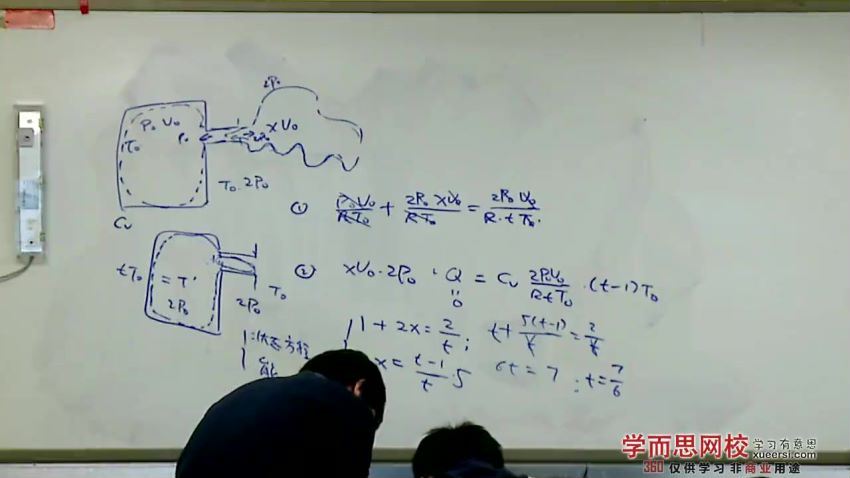 2P₀
P₀ V₀
T₀
P₀
xV₀
T₀ 2P₀
Cv
① P₀V₀/RT₀ + 2P₀ xV₀/RT₀ = 2P₀V₀/R·tT₀
tT₀
= T'
2P₀
2P₀
T₀
② xV₀·2P₀ + Q = Cv 2P₀V₀/RtT₀ ·(t-1)T₀
0
1+2x=2/t; t+5(t-1)/t=2/t
1:状态方程
x=t-1/t·5 6t=7; t=7/6
能
学而思网校 学习有意思
xueersi.com
360 仅供学习 非商业用途